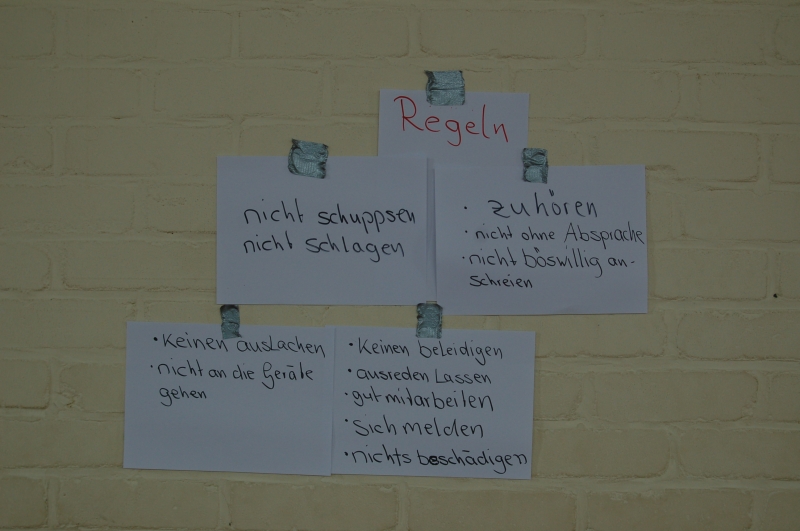 Regeln
nicht schuppsen
nicht schlagen
· zuhören
· nicht ohne Absprache
· nicht böswillig an-
schreien
· Keinen auslachen
· nicht an die Geräte
gehen
· Keinen beleidigen
· ausreden Lassen
· gut mitarbeiten
· Sich melden
· nichts beschädigen